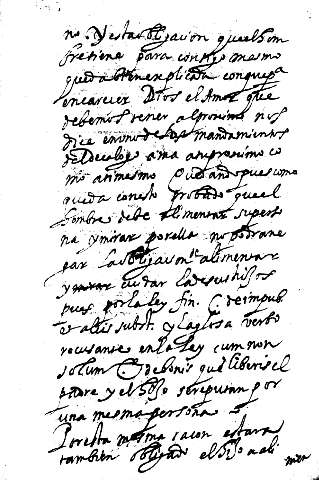 no. Y esta obligacion que el hom
fre tiene para consigo mesmo
queda bien explicada con que pa
encarecer Dios el Amor que
debemos tener al proximo nos
dice en uno de los mandamientos
del decalogo ama a tu proximo co
mo a ti mesmo Y dando pues como
queda con esto probado que el
hombre debe alimentar su perso
na y mirar por ella no podra ne
gar la obligacion de alimentar
y mirar cuidar la de sus hijos
pues por la ley fin. C. de impub.
et aliis subst. y la glosa verbo
recusanse en la ley cum non
solum C. de bonis quae liberis el
padre y el hijo se reputan por
una mesma persona
Por esta mesma racon estara
tambien obligado el hijo a ali
men